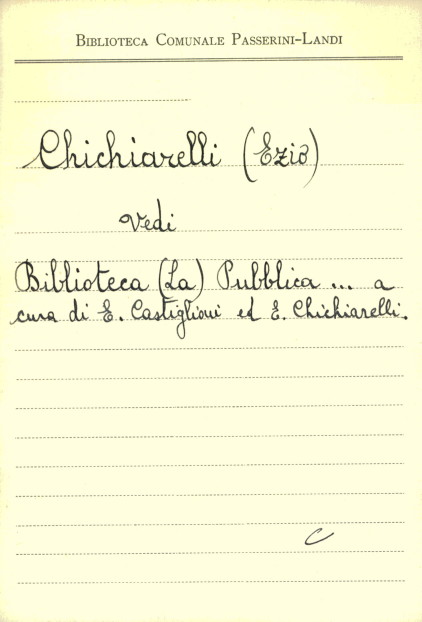 Biblioteca Comunale Passerini-Landi
Chichiarelli (Ezio)
Vedi
Biblioteca (La) Pubblica ... a
cura di E. Castiglioni ed E. Chichiarelli.
C